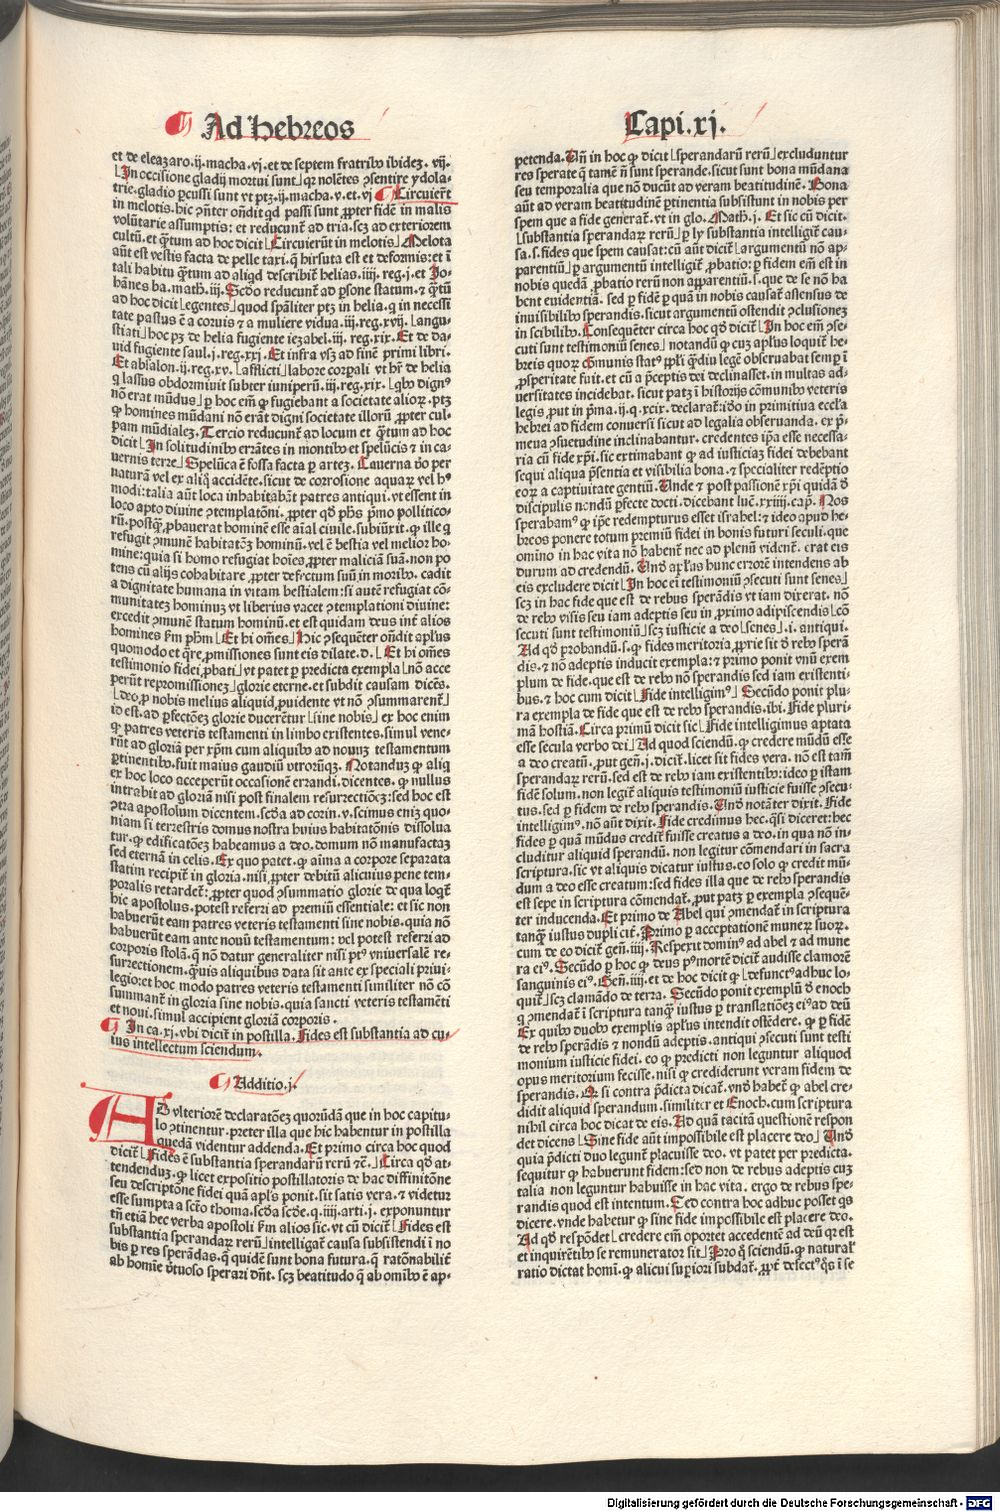 Ad Hebreos
Capi.xj.
et de eleazaro.ij.macha.vj.et de septem fratribꝰ ibideꝫ.vij.
In occisione gladij mortui sunt qꝛ nolẽtes ꝯsentire ydola-
trie.gladio ꝑcussi sunt vt ptꝫ.ij.macha.v.et.vj Circuiert̃
in melotis.hic ꝯñter oñdit qđ passi sunt ꝓpter fidẽ in malis
volũtarie assumptis: et reducunt̃ ad tria.scꝫ ad exteriorem
cultũ.et q̃tum ad hoc dicit Circuierũt in melotis Melota
aũt est vestis facta de pelle taxi.q̃ hirsuta est et deformis:et ĩ
tali habitu q̃tum ad aliqđ describit̃ helias.iiij.reg.j.et Jo-
hãnes ba.math.iij.Scđo reducunt̃ ad ꝑsone statum.⁊ q̃tũ
ad hoc dicit egentes quod spãliter ptꝫ in helia.q̃ in necessi
tate pastus ẽ a coruis ⁊ a muliere vidua.iij.reg.xvij. angu-
stiati hoc pꝫ de helia fugiente iezabel.iij.reg.xix.Et de da-
uid fugiente saul.j.reg.xxj.Et infra vsꝫ ad finẽ primi libri.
Et absalon.ij.reg.xv. afflicti labore corꝑali vt hr̃ de helia
q̃ lassus obdormiuit subter iuniperũ.iij.reg.xix. qbꝰ dignꝰ
nõ erat mũdus ꝑ hoc em̃ ꝙ fugiebant a societate alioꝝ.ptꝫ
ꝙ homines mũdani nõ erãt digni societate illorũ ꝓpter cul-
pam mũdialeꝫ.Tercio reducunt̃ ad locum et q̃tum ad hoc
dicit In solitudinibꝰ errãtes in montibꝰ et spelũcis ⁊ in ca-
uernis terre Spelũca ẽ fossa facta ꝑ arteꝫ.Cauerna v̊o per
naturã vel ex aliq̃ accidẽte.sicut de corrosione aquaꝝ vel hꝰ
modi:talia aũt loca inhabitabãt patres antiqui.vt essent in
loco apto diuine ꝯtemplatõni. ꝓpter qđ ph̃s p̃mo pollitico-
rũ.postq̃ ꝓbauerat hominẽ esse aĩal ciuile.subiũxit.ꝙ ille q̃
refugit ꝯmunẽ habitatõeꝫ hominũ.vel ẽ bestia vel melior ho-
mine:quia si homo refugiat hoĩes ꝓpter maliciã suã.non po
tens cũ alijs cohabitare ꝓpter defectum suũ in moribꝰ.cadit
a dignitate humana in vitam bestialem:si autẽ refugiat cõ-
munitateꝫ hominuꝫ vt liberius vacet ꝯtemplationi diuine:
excedit ꝯmunẽ statum hominũ.et est quidam deus int̃ alios
homines ẜm ph̃m Et hi om̃es Hic ꝯsequẽter oñdit apl̃us
quomodo et q̃re ꝓmissiones sunt eis dilate.d. Et hi om̃es
testimonio fidei ꝓbati vt patet ꝑ predicta exempla nõ acce
perũt repromissioneꝫ glorie eterne.et subdit causam dicẽs.
deo ꝓ nobis melius aliquid ꝓuidente vt nõ ꝯsummarent̃
id est.ad ꝑfectõeꝫ glorie ducerẽtur sine nobis ex hoc enim
ꝙ patres veteris testamenti in limbo existentes.simul vene-
rũt ad gloriã per xp̃m cum aliquibꝰ ad nouuꝫ testamentum
ꝑtinentibꝰ.fuit maius gaudiũ vtrorũqꝫ.Notanduꝫ ꝙ aliq̃
ex hoc loco acceperũt occasionẽ errandi.dicentes.ꝙ nullus
intrabit ad gloriã nisi post finalem resurrectiõeꝫ:sed hoc est
ꝯtra apostolum dicentem.scđa ad corin.v.scimus enim quo-
niam si terrestris domus nostra huius habitatõnis dissolua
tur.ꝙ edificatõeꝫ habeamus a deo.domum nõ manufactaꝫ
sed eternã in celis.Ex quo patet.ꝙ aĩma a corpore separata
statim recipit̃ in gloria.nisi ꝓpter debitũ alicuius pene tem-
poralis retardet̃:ꝓpter quod ꝯsummatio glorie de qua loqt̃
hic apostolus.potest referri ad premiũ essentiale:et sic non
habuerũt eam patres veteris testamenti sine nobis.quia nõ
habuerũt eam ante nouũ testamentum: vel potest referri ad
corporis stolã.q̃ nõ datur generaliter nisi ptꝰ vniuersalẽ re-
surrectionem.q̃uis aliquibus data sit ante ex speciali priui-
legio:et hoc modo patres veteris testamenti similiter nõ cõ
summant̃ in gloria sine nobis.quia sancti veteris testamẽti
et noui.simul accipient gloriã corporis.
In ca.xj.vbi dicit̃ in postilla.Fides est substantia ad cu-
ius intellectum sciendum.
Additio.j.
AD vlteriorẽ declaratõeꝫ quorũdã que in hoc capitu-
lo ꝯtinentur.preter illa que hic habentur in postilla
quedã videntur addenda.Et primo circa hoc quod
dicit̃ Fides ẽ substantia sperandarũ rerũ ⁊c̃. Circa qđ at-
tendenduꝫ.ꝙ licet expositio postillatoris de hac diffinitõne
seu descriptõne fidei quã apl̃s ponit.sit satis vera.⁊ videtur
esse sumpta a sc̃to thoma.scđa scđe.q.iiij.arti.j. exponuntur
tñ etiã hec verba apostoli ẜm alios sic.vt cũ dicit̃ Fides est
substantia sperandaꝝ rerũ intelligat̃ causa subsistendi ĩ no
bis ꝑ res sperãdas.q̃ quidẽ sunt bona futura.q̃ ratõnabilit̃
ab homĩe v̓tuoso sperari dñt. scꝫ beatitudo q̃ ab omĩbꝰ ẽ ap-
petenda.Uñ in hoc ꝙ dicit sperandarũ rerũ excluduntur
res sperate q̃ tamẽ ñ sunt sperande.sicut sunt bona mũdana
seu temporalia que nõ ducũt ad veram beatitudinẽ. Bona
aũt ad veram beatitudinẽ ꝑtinentia subsistunt in nobis per
spem que a fide generat̃.vt in glo.Math.j. Et sic cũ dicit.
substantia sperandaꝝ rerũ ꝑ ly substantia intelligit̃ cau-
sa.s.fides que spem causat:cũ aũt dicit̃ argumentũ nõ ap-
parentiũ ꝑ argumentũ intelligit̃ ꝓbatio: ꝑ fidem em̃ est in
nobis quedã ꝓbatio rerũ non apparentiũ.s.que de se nõ ha
bent euidentiã. sed ꝑ fidẽ ꝑ quã in nobis causat̃ assensus de
inuisibilibꝰ sperandis.sicut argumentũ ostendit ꝯclusionez
in scibilibꝰ.Consequẽter circa hoc qđ dicit̃ In hoc em̃ ꝯse-
cuti sunt testimoniũ senes notandũ ꝙ cuꝫ apl̃us loquit̃ he-
breis quoꝝ cõmunis statꝰ ppl̃i q̃diu legẽ obseruabat semꝑ ĩ
ꝓsperitate fuit.et cũ a p̃ceptis dei declinasset.in multas ad-
uersitates incidebat. sicut patꝫ ĩ historijs cõmunibꝰ veteris
legis ꝓut in p̃ma.ij.q.xcix.declarat̃:iđo in primitiua eccl̃a
hebrei ad fidem conuersi sicut ad legalia obseruanda.ex p̃-
meua ꝯsuetudine inclinabantur.credentes ip̃a esse necessa-
ria cũ fide xp̃i.sic extimabant ꝙ ad iusticiaꝫ fidei debebant
sequi aliqua p̃sentia et visibilia bona.⁊ specialiter redẽptio
eoꝝ a captiuitate gentiũ. Unde ⁊ post passionẽ xp̃i quidã đ
discipulis nondũ ꝑfecte docti.dicebant luc̃.xxiiij.cap. Nos
sperabamꝰ ꝙ ip̃e redempturus esset israhel:⁊ ideo apud he-
breos ponere totum premiũ fidei in bonis futuri seculi.que
omnino in hac vita nõ habent̃ nec ad plenũ vident̃. erat eis
durum ad credendũ. Uñđ apl̃us hunc errorẽ intendens ab
eis excludere dicit In hoc em̃ testimoniũ ꝯsecuti sunt senes
scꝫ in hac fide que est de rebus sperãdis vt iam dixerat. nõ
de rebꝰ visis seu iam adeptis seu in ꝓximo adipiscendis cõ
secuti sunt testimoniũ scꝫ iusticie a deo senes .i. antiqui.
Ad qđ ꝓbandũ.s.ꝙ fides meritoria ꝓprie sit đ rebꝰ sperã
dis.⁊ nõ adeptis inducit exempla:⁊ primo ponit vnũ exem
plum de fide.que est de rebꝰ nõ sperandis sed iam existenti-
bus.⁊ hoc cum dicit Fide intelligimꝰ Secũdo ponit plu-
ra exempla de fide que est de rebꝰ sperandis.ibi.Fide pluri-
mã hostiã.Circa primũ dicit sic Fide intelligimus aptata
esse secula verbo dei Ad quod sciendũ.ꝙ credere mũdũ esse
a deo creatũ.ꝓut gen̄.j.dicit̃.licet sit fides vera. nõ est tam̃
sperandaꝝ rerũ.sed est de rebꝰ iam existentibꝰ:ideo ꝑ istam
fidẽ solum.non legit̃ aliquis testimoniũ iusticie fuisse ꝯsecu-
tus.sed ꝑ fidem de rebꝰ sperandis. Uñđ notãter dixit.Fide
intelligimꝰ.nõ aũt dixit. Fide credimus hec.q̃si diceret:hec
fides ꝑ quã mũdus credit̃ fuisse creatus a deo.in qua nõ in-
cluditur aliquid sperandũ. non legitur cõmendari in sacra
scriptura.sic vt aliquis dicatur iustus.eo solo ꝙ credit mũ-
dum a deo esse creatum:sed fides illa que de rebꝰ sperandis
est sepe in scriptura cõmendat̃.ꝓut patꝫ ꝑ exempla ꝯsequẽ-
ter inducenda.Et primo de Abel qui ꝯmendat̃ in scriptura
tanq̃ iustus dupliciť. Primo ꝑ acceptationẽ muneꝝ suoꝝ.
cum de eo dicit̃ gen̄.iiij. Respexit dominꝰ ad abel ⁊ ad mune
ra eiꝰ. Secũdo ꝑ hoc ꝙ deus pꝰmortẽ dicit̃ audisse clamorẽ
sanguinis eiꝰ. Gen̄.iiij.et de hoc dicit̃ ꝙ defunctꝰadhuc lo-
quit̃ scꝫ clamãdo de terra. Secũdo ponit exemplũ đ enoch
q̃ ꝯmendat̃ ĩ scriptura tanq̃ iustus ꝑ translatiõeꝫ eiꝰad deũ
Ex quibꝰ duobꝰ exemplis apl̃us intendit ostẽdere.ꝙ ꝑ fidẽ
de rebꝰ sperãdis ⁊ nondũ adeptis.antiqui ꝯsecuti sunt testi
monium iusticie fidei. eo ꝙ predicti non leguntur aliquod
opus meritorium fecisse.nisi ꝙ crediderunt veram fidem de
sperandis. Qꝛ si contra p̃dicta dicat̃.vnđ habet̃ ꝙ abel cre-
didit aliquid sperandum.similiter et Enoch.cum scriptura
nihil circa hoc dicat de eis.Ad quã tacitã questionẽ respon
det dicens Sine fide aũt impossibile est placere deo Uñđ
quia p̃dicti duo legunt̃ placuisse deo.vt patet per predicta.
sequitur ꝙ habuerunt fidem:sed non de rebus adeptis cuꝫ
talia non leguntur habuisse in hac vita. ergo de rebus spe-
randis quod est intentum. Sed contra hoc adhuc posset qs
dicere.vnde habetur ꝙ sine fide impossibile est placere deo.
Ad qđ respõdet credere em̃ oportet accedentẽ ad deũ qꝛ est
et inquirẽtibꝰ se remunerator sit Pro q̃ sciendũ.ꝙ natural̓
ratio dictat homĩ.ꝙ alicui suꝑiori subdat̃. ꝓpt̃ defectꝰ q̃s ĩ se
Digitalisierung gefördert durch die Deutsche Forschungsgemeinschaft - DFG